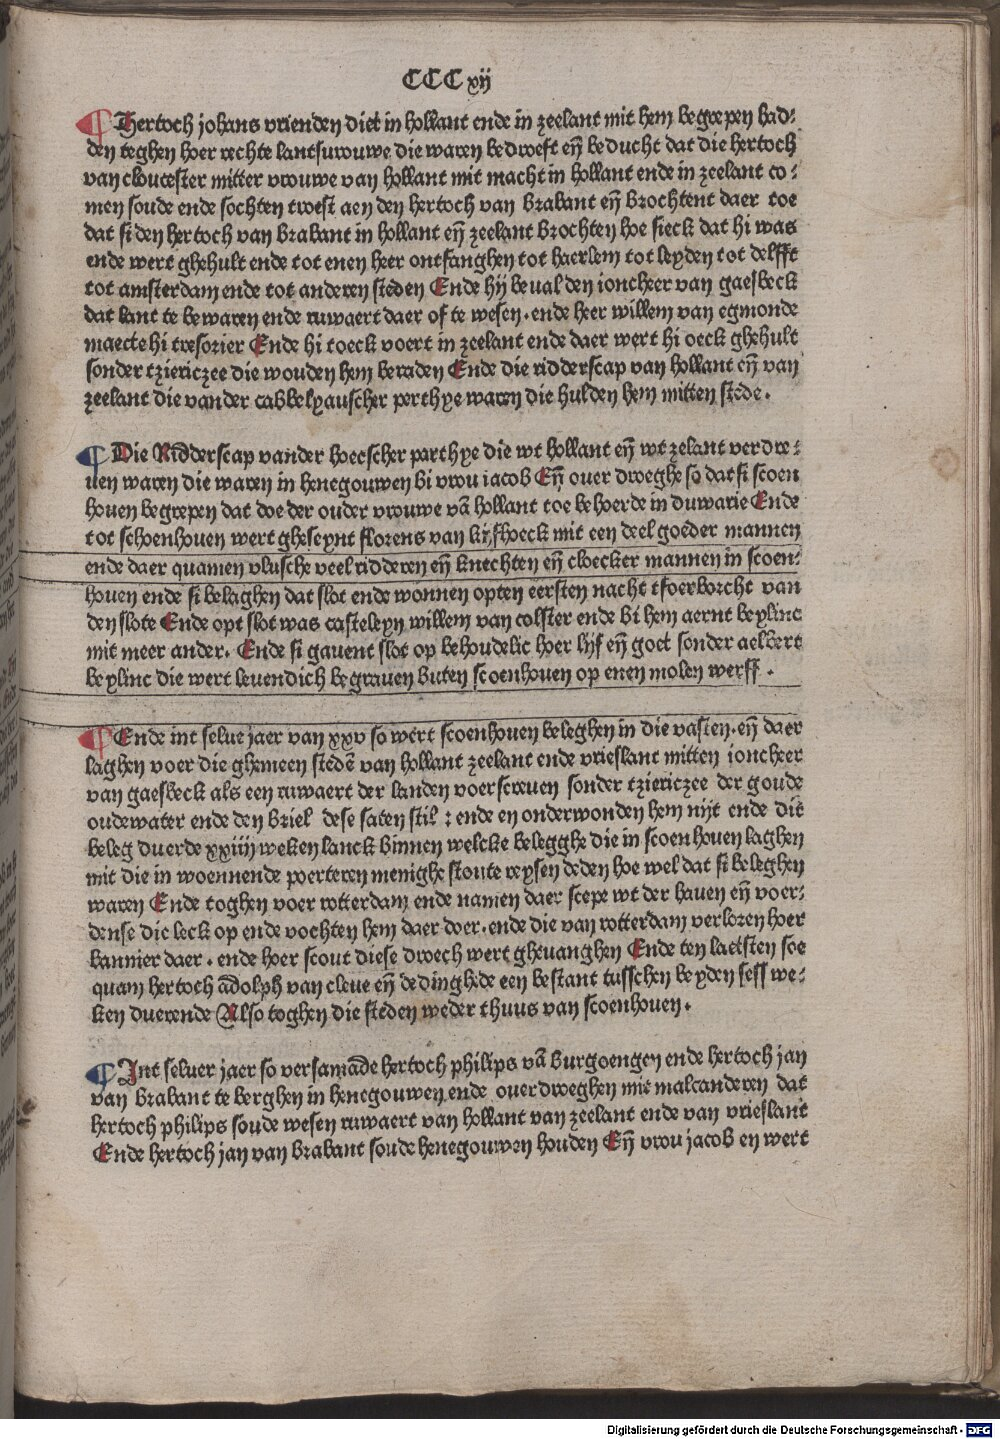 CCCxij
¶ Thertoch johans vrienden diet in hollant ende in zeelant mit hem begrepen had-
den teghen hoer rechte lantsvrouwe die waren bedroeft eñ beducht dat die hertoch
van cloucester mitter vrouwe van hollant mit macht in hollant ende in zeelant co-
men soude ende sochten troest aen den hertoch van brabant eñ brochtent daer toe
dat si den hertoch van brabant in hollant eñ zeelant brochten hoe sieck dat hi was
ende wert ghehult ende tot enen heer ontfanghen tot haerlem tot leyden tot delfft
tot amsterdam ende tot anderen steden Ende hij beual den ioncheer van gaesbeck
dat lant te bewaren ende ruwaert daer of te wesen. ende heer willem van egmonde
maecte hi tresorier Ende hi toeck voert in zeelant ende daer wert hi oeck ghehult
sonder tziericzee die wouden hem beraden Ende die ridderscap van hollant eñ van
zeelant die vander cabbelyauscher perthye waren die hulden hem mitten stede.
¶ Die Ridderscap vander hoecscher parthye die wt hollant eñ wt zelant verdre-
uen waren die waren in henegouwen bi vrou iacob Eñ ouer droeghe so dat si scoen
houen begrepen dat doe der ouder vrouwe vā hollant toe behoerde in duwarie Ende
tot schoenhouen wert gheseynt florens van kijfhoeck mit een deel goeder mannen
ende daer quamen vlusche veel ridderen eñ knechten eñ cloecker mannen in scoen-
houen ende si belaghen dat slot ende wonnen opten eersten nacht tfoerborcht van
den slote Ende opt slot was casteleyn willem van colster ende bi hem aernt beylinc
mit meer ander. Ende si gauent slot op behoudelic hoer lijf eñ goet sonder aelbert
beylinc die wert leuendich begrauen buten scoenhouen op enen molen werff.
¶ Ende int selue jaer van xxv so wert scoenhouen beleghen in die vasten. eñ daer
laghen voer die ghemeen stedē van hollant zeelant ende vrieslant mitten ioncheer
van gaesbeck als een ruwaert der landen voerscreuen sonder tziericzee der goude
oudewater ende den briel dese saten stil : ende en onderwonden hem nijt ende dit
beleg duerde xxiiij weken lanck binnen welcke belegghe die in scoenhouen laghen
mit die in woennende poerteren menighe stoute reysen deden hoe wel dat si beleghen
waren Ende toghen voer rotterdam ende namen daer scepe wt der hauen eñ voer-
dense die leck op ende vochten hem daer doer. ende die van rotterdam verloren hoer
bannier daer. ende hoer scout diese droech wert gheuanghen Ende ten laetsten soe
quam hertoch ādolph van cleue eñ dedinghede een bestant tusschen beyden sess we-
ken duerende Also toghen die steden weder thuus van scoenhouen.
¶ Int seluer jaer so versamāde hertoch philips vā burgoengen ende hertoch jan
van brabant te berghen in henegouwen ende ouerdroeghen mit malcanderen dat
hertoch philips soude wesen ruwaert van hollant van zeelant ende van vrieslant
Ende hertoch jan van brabant soude henegouwen houden Eñ vrou jacob en wert
Digitalisierung gefördert durch die Deutsche Forschungsgemeinschaft - DFG